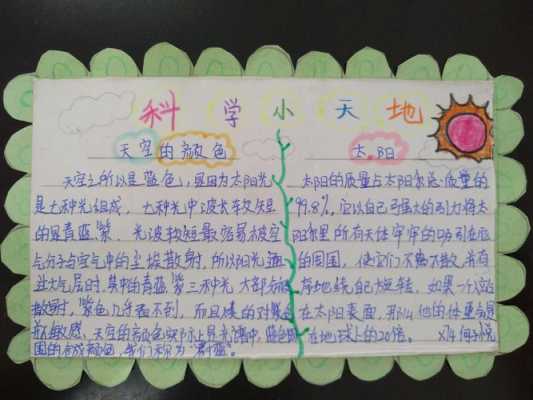 科学小天地
天空的颜色
天空之所以是蓝色,是因为太阳光
是七种光组成,七种光中波长较短
的是青蓝紫,光波较短最容易被空
气分子与空气中的尘埃散射,所以阳光通
过大气层时,其中的青蓝紫三种光大部分被
散射,紫色几乎看不到,而且的对紫色
敏感,天空的颜色实际上是光谱中,蓝色
围的合成颜色,我们称为"蔚蓝"。
太阳
太阳的质量占太阳系总质量的
99.8%,它以自己强大的引力将太
阳系里所有天体牢牢的吸引在
的周围,使它们不离不散,井有
序地绕自己旋转,如果一个人站
在太阳表面,那么他的体重是
在地球上的20倍。